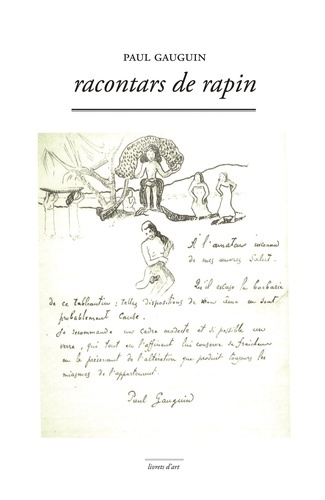 PAUL GAUGUIN
racontars de rapin
A l'amateur inconnu
de mes œuvres Salut.
Qu'il excuse la barbarie
de ce tableautin : telles dispositions de mon âme en sont
probablement cause.
Je recommande un cadre modeste et si possible un
verre, qui tout en l'affinant lui conserve sa fraîcheur
en le préservant de l'altération que produit toujours les
miasmes de l'appartement.
Paul Gauguin
livrets d'art